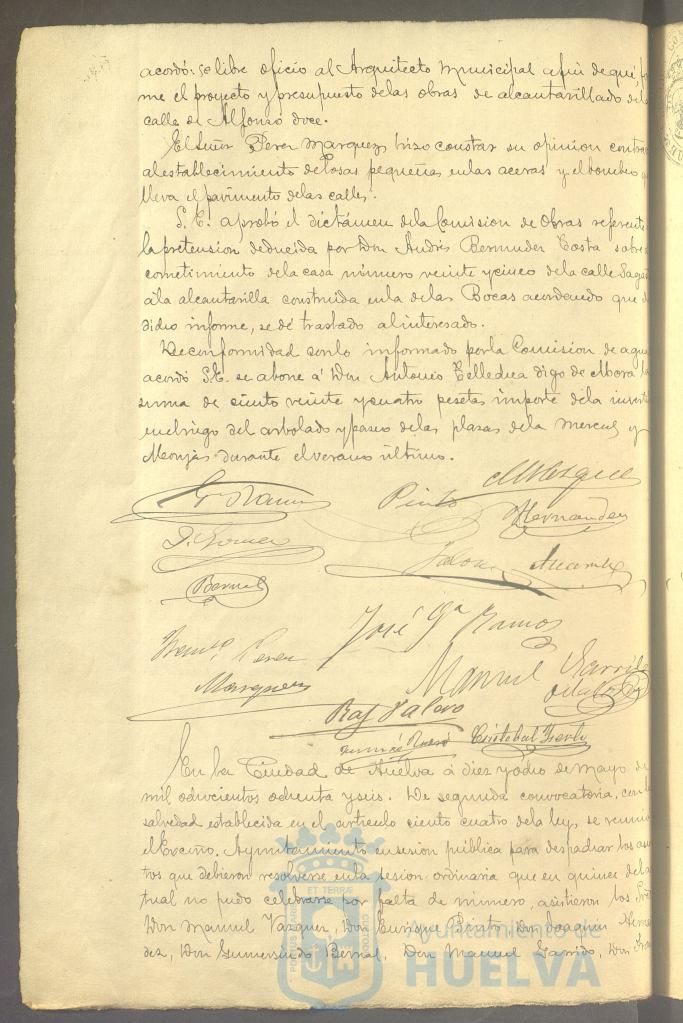 acordó: se libre oficio al Arquitecto Municipal afin de que for
me el proyecto y presupuesto delas obras de alcantarillado dela
calle de Alfonso doce.
El Señor Perez Marquez hizo constar su opinion contra
al establecimiento de losas pequeñas enlas aceras y el bombeo q
lleva el pavimento delas calles.
S. E. aprobó el dictámen dela Comision de Obras referente
la pretension deducida por Don Andrés Bermudez Costa sobre
cometimiento dela casa número veinte y cinco dela calle Sagas
á la alcantarilla construida enla delas Bocas acordando que
dicho informe, se dé traslado al interesado.
De conformidad conlo informado porla Comision de agua
acordó S. E. se abone á Don Antonio digo de Mora la
suma de ciento veinte y cuatro pesetas importe dela inverti
enelriego del arbolado y paseo delas plazas dela Merced y
Monjas durante el verano último.
Pinto Vazquez
Hernandez
J. Gomez
Bernal
José Gª Ramos
Perez
Marquez
Manuel Garrido
Raf
Cristobal
En la Ciudad de Huelva á diez y ocho de Mayo de
mil ochocientos ochenta y seis. De segunda convocatoria, con la
salvedad establecida en el artículo ciento cuatro dela ley, se reunió
el Excmo. Ayuntamiento en sesion pública para despachar los asun
tos que debieron resolverse enla sesion ordinaria que en quince del ac
tual no pudo celebrarse por falta de número, asistieron los Seño
Don Manuel Vazquez, Don Enrique Pinto, Don Joaquin Hernan
dez, Don Gumersindo Bernal, Don Manuel Garrido, Don Fran
PORTUS MARIS ET TERRÆ CUSTODIA
Ayuntamiento de
HUELVA